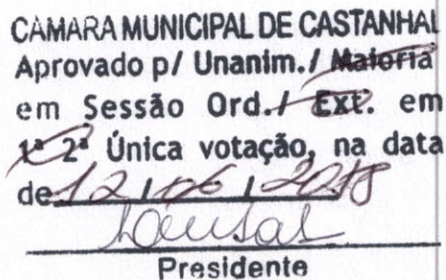 CAMARA MUNICIPAL DE CASTANHAL
Aprovado p/ Unanim./ Maioria
em Sessão Ord./ Ext. em
1ª 2ª Única votação, na data
de 12 / 06 / 2018
Presidente